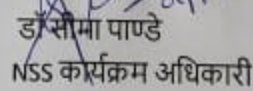 डॉ सीमा पाण्डे
NSS कार्यक्रम अधिकारी